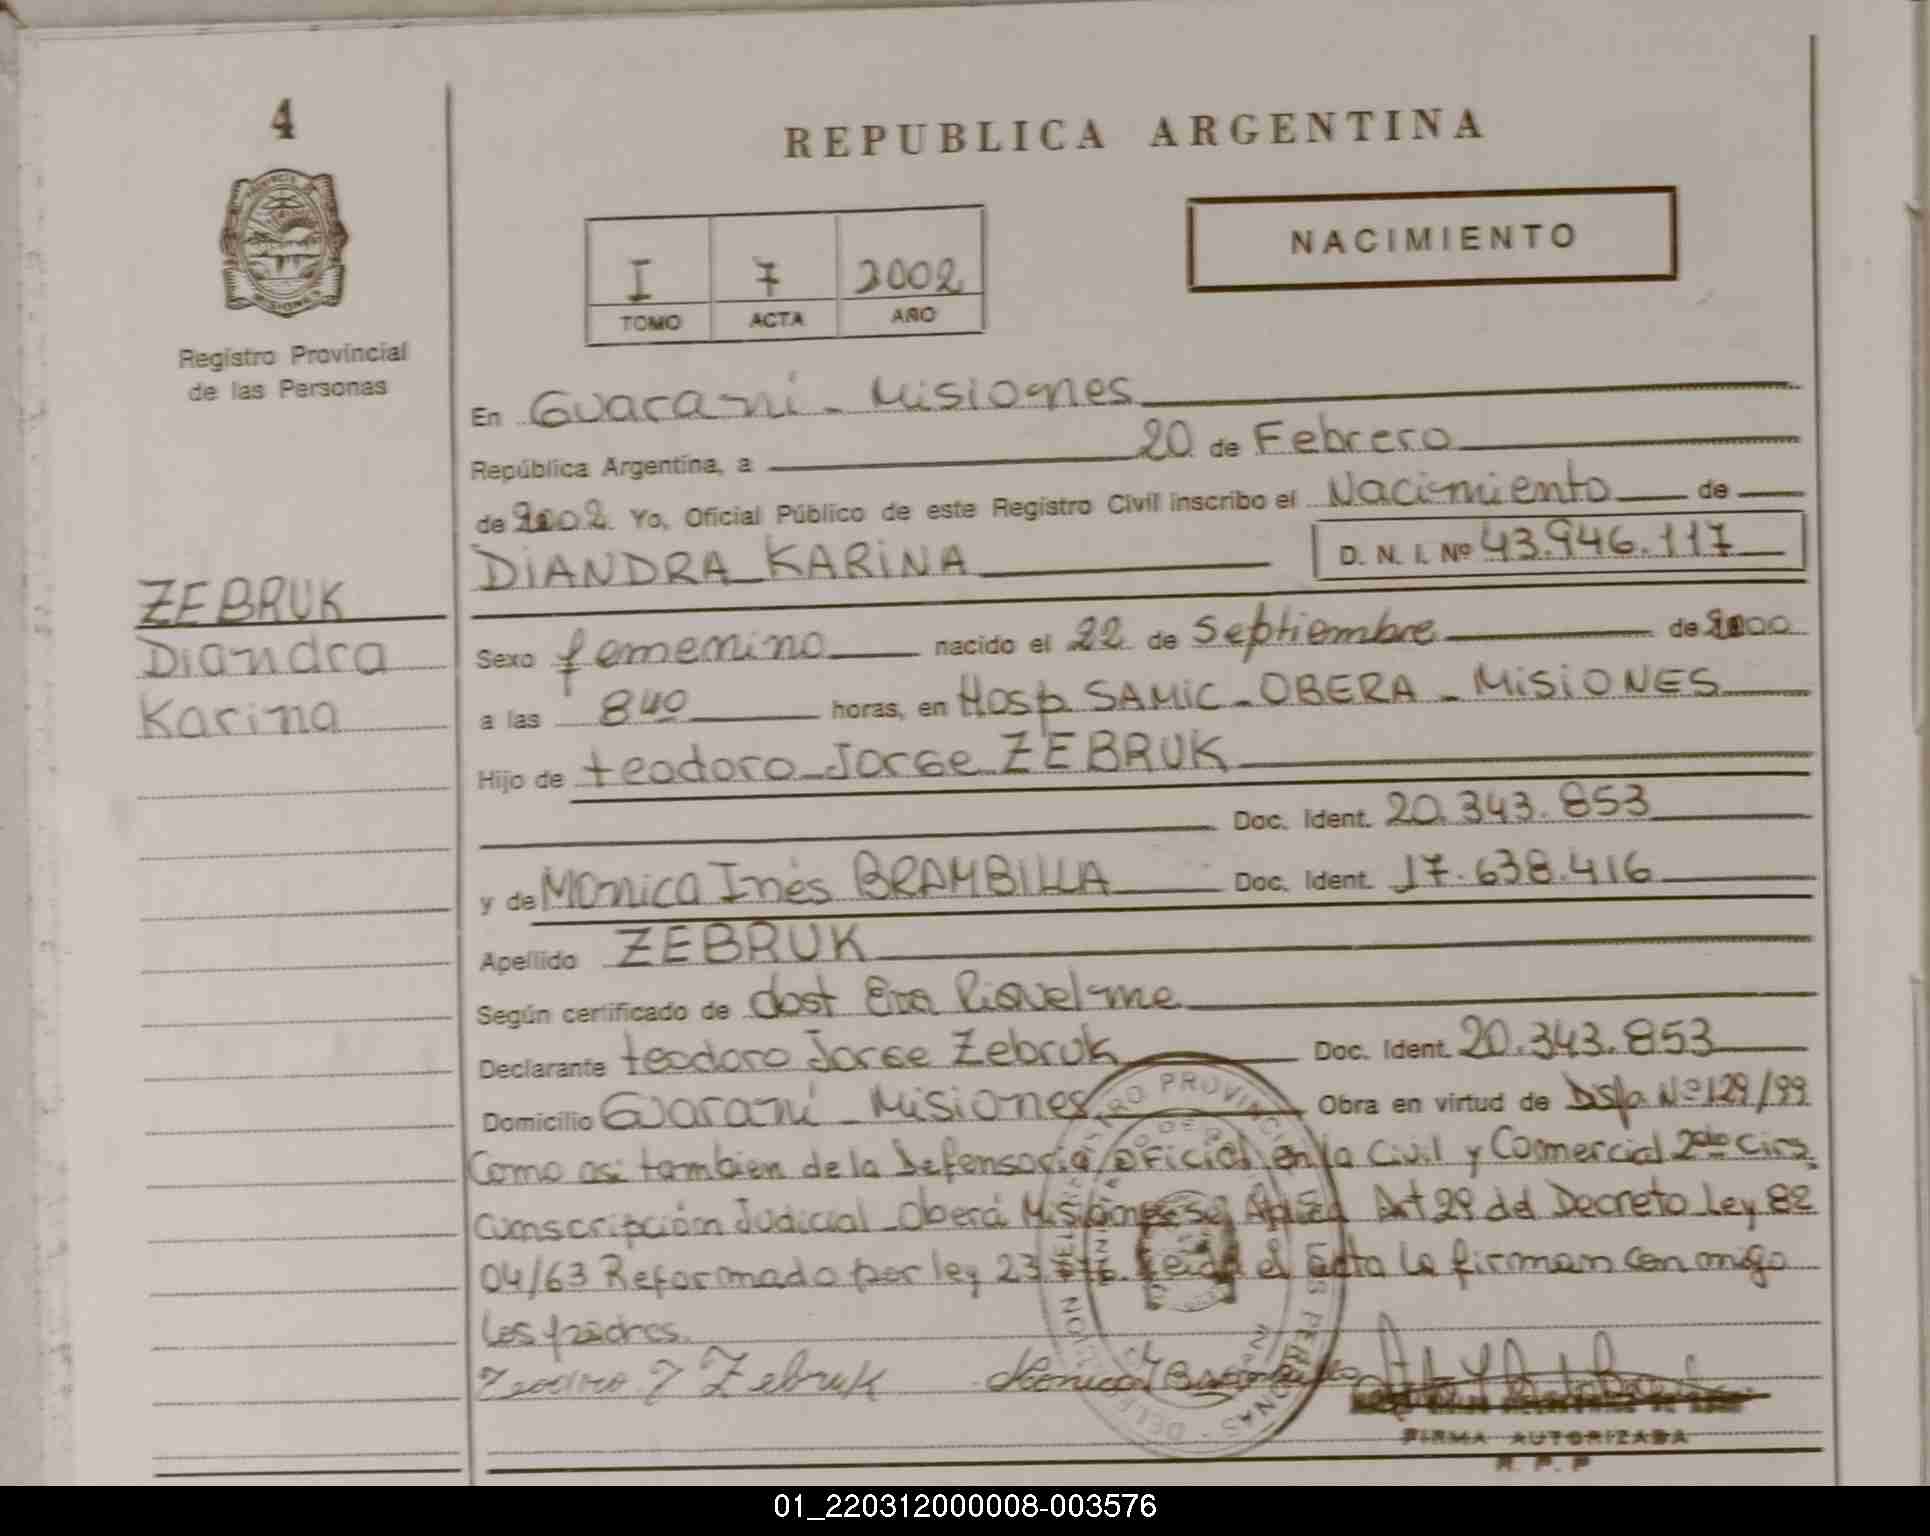 4
REPUBLICA ARGENTINA
NACIMIENTO
I 7 2002
TOMO ACTA AÑO
Registro Provincial
de las Personas
En Guaraní - Misiones
República Argentina, a 20 de Febrero
de 2002. Yo, Oficial Público de este Registro Civil inscribo el Nacimiento de
DIANDRA KARINA D. N. I. Nº 43.946.117
ZEBRUK
Diandra
Karina
Sexo femenino nacido el 22 de Septiembre de 2000
a las 8 40 horas, en Hosp. SAMIC - OBERA - MISIONES
Hijo de teodoro Jorge ZEBRUK
Doc. Ident. 20.343.853
y de Monica Inés BRAMBILLA Doc. Ident. 17.638.416
Apellido ZEBRUK
Según certificado de obst Eva Riquelme
Declarante teodoro Jorge Zebruk Doc. Ident. 20.343.853
Domicilio Guaraní - Misiones Obra en virtud de Disp. Nº 129/99
Como asi tambien de la Defensoria Oficial en lo Civil y Comercial 2da Cir
cunscripción Judicial - Oberá Misiones Art 29 del Decreto Ley 82
04/63 Reformado por ley 23 Leida el Acta la firman conmigo
los padres.
Teodoro J Zebruk
FIRMA AUTORIZADA
R. P. P
01_220312000008-003576